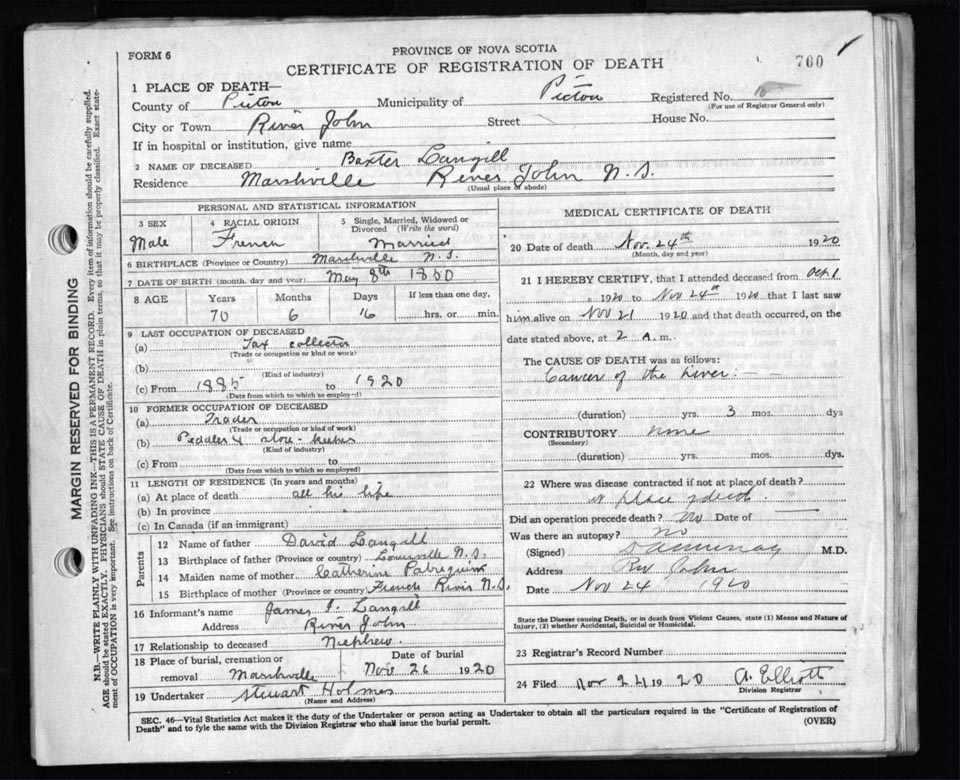 FORM 6
PROVINCE OF NOVA SCOTIA
CERTIFICATE OF REGISTRATION OF DEATH
700
1 PLACE OF DEATH—
County of Pictou Municipality of Pictou Registered No. 10
(For use of Registrar General only)
City or Town River John Street House No.
If in hospital or institution, give name
2 NAME OF DECEASED Baxter Langill
Residence Marshville River John N.S.
(Usual place of abode)
PERSONAL AND STATISTICAL INFORMATION
3 SEX 4 RACIAL ORIGIN 5 Single, Married, Widowed or Divorced (Write the word)
Male French Married
6 BIRTHPLACE (Province or Country) Marshville N.S.
7 DATE OF BIRTH (month, day and year) May 8th 1850
8 AGE Years Months Days If less than one day,
70 6 16 hrs. or min.
9 LAST OCCUPATION OF DECEASED
(a) Tax collector
(Trade or occupation or kind or work)
(b)
(Kind of industry)
(c) From 1885 to 1920
(Date from which to which so employed)
10 FORMER OCCUPATION OF DECEASED
(a) Trader
(Trade or occupation or kind of work)
(b) Peddler & store-keeper
(Kind of industry)
(c) From to
(Date from which to which so employed)
11 LENGTH OF RESIDENCE (In years and months)
(a) At place of death all his life
(b) In province
(c) In Canada (if an immigrant)
Parents
12 Name of father David Langill
13 Birthplace of father (Province or country) Louisville N.S.
14 Maiden name of mother Catherine
15 Birthplace of mother (Province or country) French River N.S.
16 Informant's name James I. Langill
Address River John
17 Relationship to deceased Nephew.
18 Place of burial, cremation or Date of burial
removal Marshville Nov 26 1920
19 Undertaker Stewart Holmes
(Name and Address)
MEDICAL CERTIFICATE OF DEATH
20 Date of death Nov. 24th 1920
(Month, day and year)
21 I HEREBY CERTIFY, that I attended deceased from Oct 1
1920 to Nov 24th 1920 that I last saw
him alive on Nov 21 1920 and that death occurred, on the
date stated above, at 2 A. m.
The CAUSE OF DEATH was as follows:
Cancer of the Liver:—
(duration) yrs. 3 mos. dys
CONTRIBUTORY none
(Secondary)
(duration) yrs. mos. dys.
22 Where was disease contracted if not at place of death?
at place of death.
Did an operation precede death? No Date of
Was there an autopsy? No
(Signed) M.D.
Address Riv John
Date Nov 24 1920
State the Disease causing Death, or in death from Violent Causes, state (1) Means and Nature of
Injury, (2) whether Accidental, Suicidal or Homicidal.
23 Registrar's Record Number
24 Filed Nov 24 1920 A. Elliott
Division Registrar
SEC. 46—Vital Statistics Act makes it the duty of the Undertaker or person acting as Undertaker to obtain all the particulars required in the "Certificate of Registration of
Death" and to fyle the same with the Division Registrar who shall issue the burial permit.
(OVER)
MARGIN RESERVED FOR BINDING
N.B.—WRITE PLAINLY WITH UNFADING INK—THIS IS A PERMANENT RECORD. Every item of information should be carefully supplied.
AGE should be stated EXACTLY. PHYSICIANS should STATE CAUSE OF DEATH in plain terms, so that it may be properly classified. Exact state-
ment of OCCUPATION is very important. See instructions on back of Certificate.